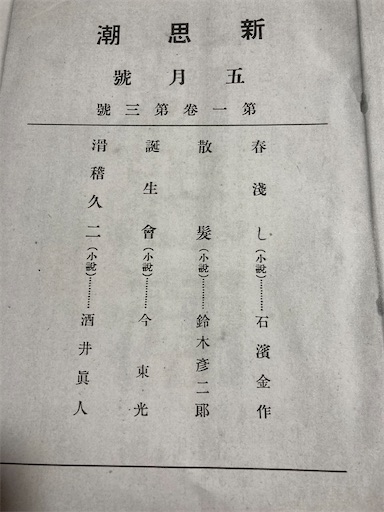 新思潮
五月號
第一卷第三號
春淺し(小說)…………石濱金作
散髮(小說)…………鈴木彥二郞
誕生會(小說)…………今東光
滑稽久二(小說)…………酒井眞人